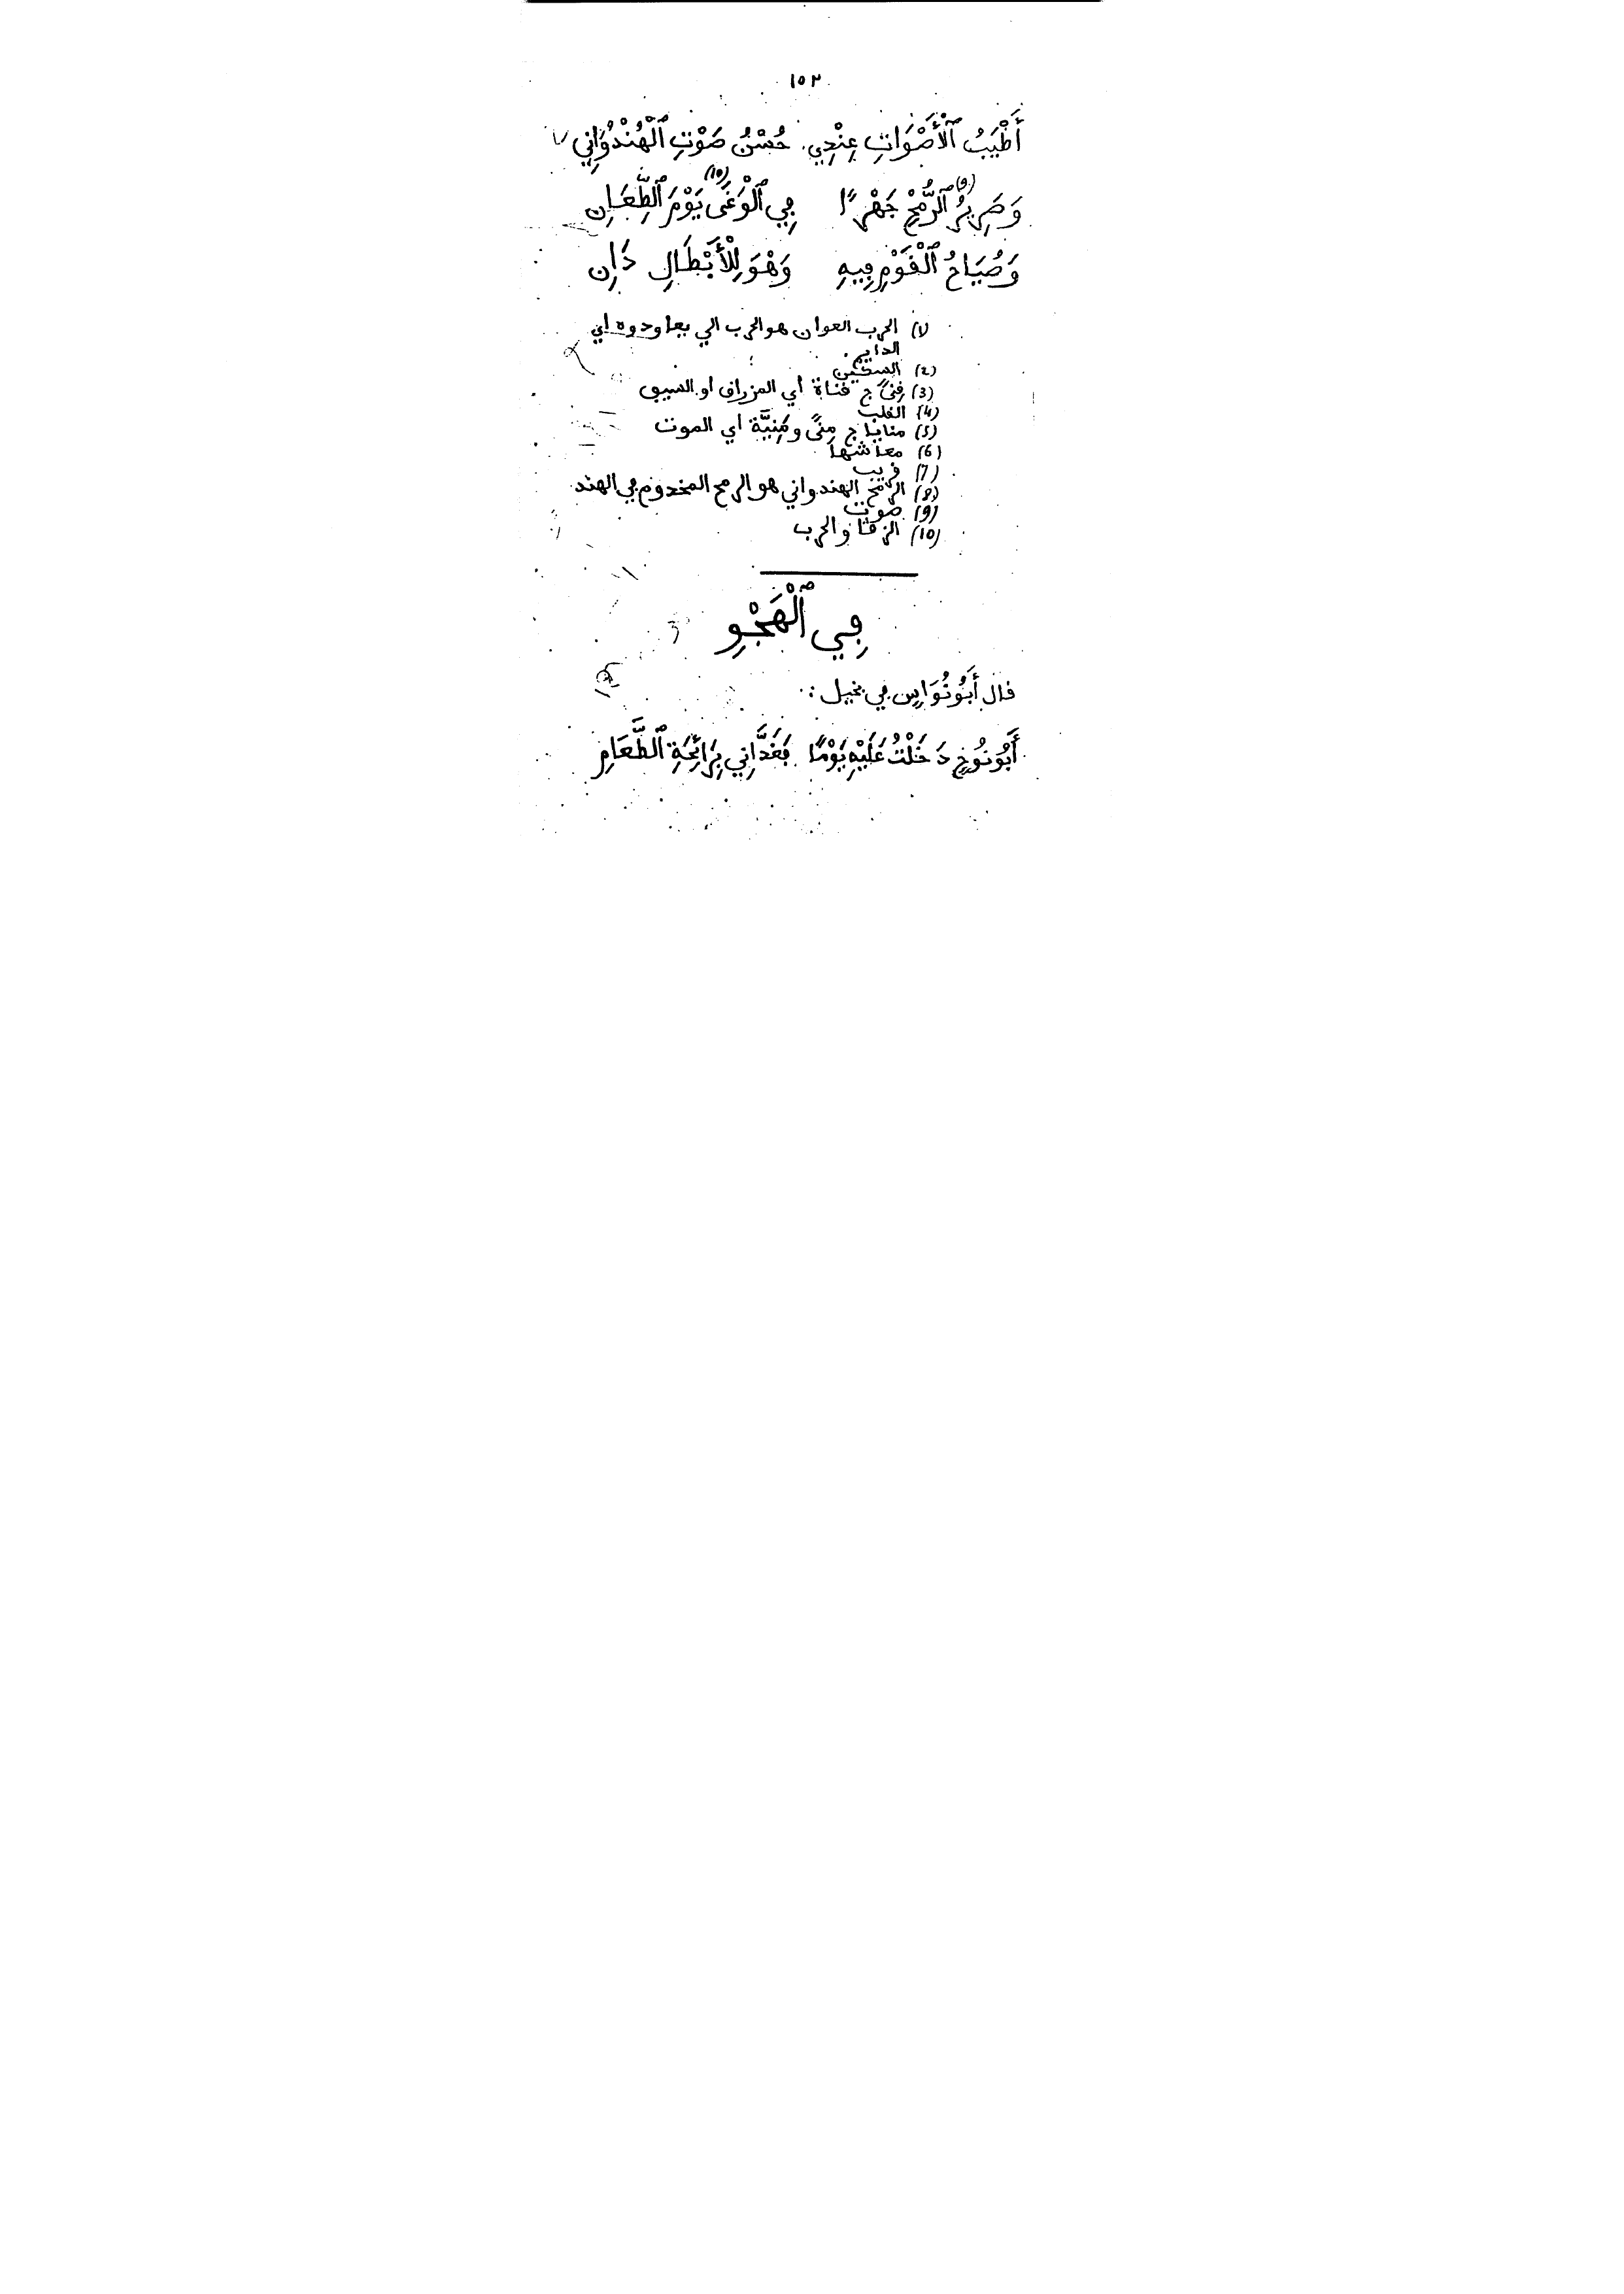 ١٥٢
أَطْيَبُ ٱلْأَصْوَاتِ عِنْدِي حُسْنُ صَوْتِ ٱلْهُنْدُوَانِي
وَصَرِيرُ (9) ٱلرُّمْحِ جَهْرًا فِي ٱلْوَغَى (10) يَوْمَ ٱلطِّعَانِ
وَصُيَاحُ ٱلْقَوْمِ فِيهِ وَهْوَ لِلْأَبْطَالِ دَانِ
(1) الحرب العوان هو الحرب الي يعاودوه اي
الدايم.
(2) السكين
(3) قِنًى ج قناة أي المزراق او السيف
(4) القلب
(5) منايا ج مِنًى ومَنِيَّة اي الموت
(6) معاشها
(7) قريب
(8) الرمح الهندواني هو الرمح المخدوم في الهند
(9) صوت
(10) الزقا والحرب
فِي ٱلْهَجْوِ
قال أَبُو نُوَاسٍ في بخيل :
أَبُو نُوحٍ دَخَلْتُ عَلَيْهِ يَوْمًا فَغَدَّانِي بِرَائِحَةِ ٱلطَّعَامِ